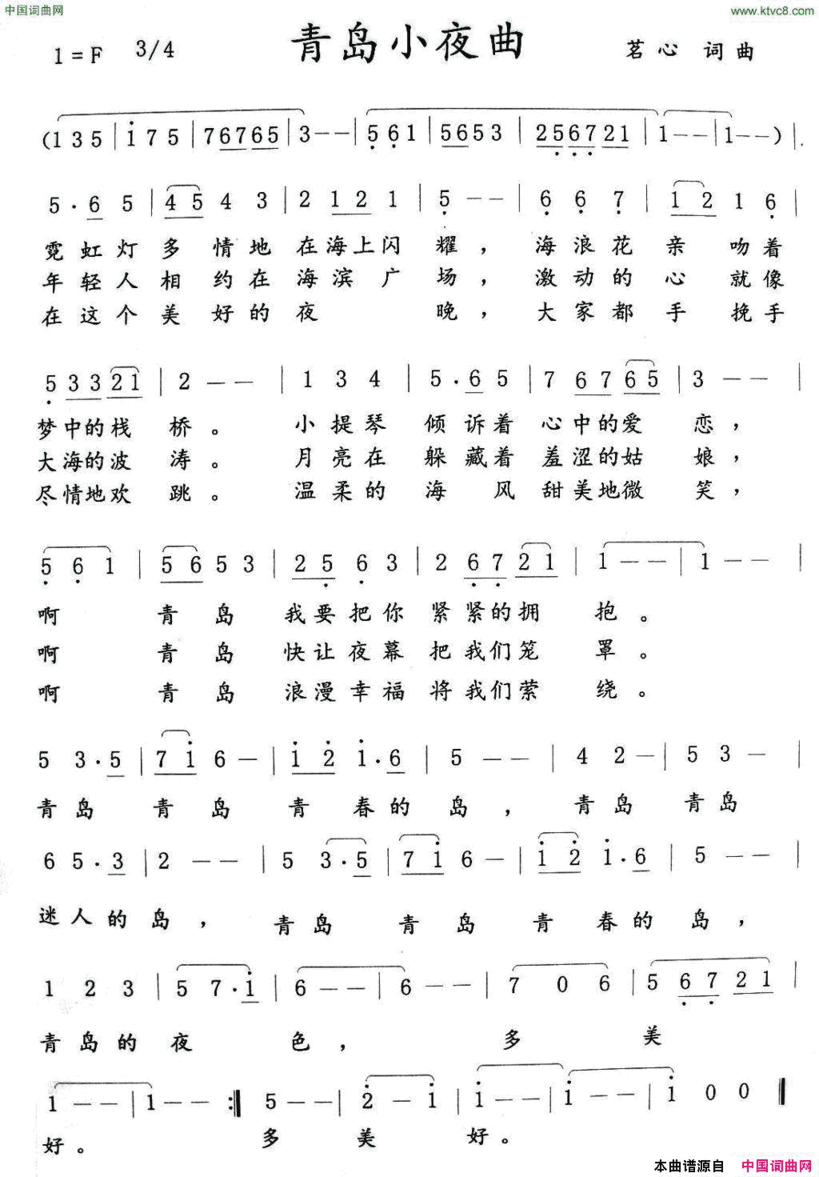 中国词曲网
www.ktvc8.com
1=F 3/4 青岛小夜曲 茗心 词曲
(1 3 5 | i 7 5 | 7 6 7 6 5 | 3 - - | 5 6 1 | 5 6 5 3 | 2 5 6 7 2 1 | 1 - - | 1 - - ) |
5 · 6 5 | 4 5 4 3 | 2 1 2 1 | 5 - - | 6 6 7 | 1 2 1 6 |
霓虹灯多情地在海上闪耀，海浪花亲吻着
年轻人相约在海滨广场，激动的心就像
在这个美好的夜晚，大家都手挽手
5 3 3 2 1 | 2 - - | 1 3 4 | 5 · 6 5 | 7 6 7 6 5 | 3 - - |
梦中的栈桥。小提琴倾诉着心中的爱恋，
大海的波涛。月亮在躲藏着羞涩的姑娘，
尽情地欢跳。温柔的海风甜美地微笑，
5 6 1 | 5 6 5 3 | 2 5 6 3 | 2 6 7 2 1 | 1 - - | 1 - - |
啊 青岛 我要把你紧紧的拥抱。
啊 青岛 快让夜幕把我们笼罩。
啊 青岛 浪漫幸福将我们萦绕。
5 3 · 5 | 7 i 6 - | i 2 i · 6 | 5 - - | 4 2 - | 5 3 - |
青岛 青岛 青春的岛，青岛 青岛
6 5 · 3 | 2 - - | 5 3 · 5 | 7 i 6 - | i 2 i · 6 | 5 - - |
迷人的岛，青岛 青岛 青春的岛，
1 2 3 | 5 7 · i | 6 - - | 6 - - | 7 0 6 | 5 6 7 2 1 |
青岛的夜色，多美
1 - - | 1 - - :‖ 5 - - | 2 - i | i - - | i - - | 1 0 0 ‖
好。多美好。
本曲谱源自 中国词曲网